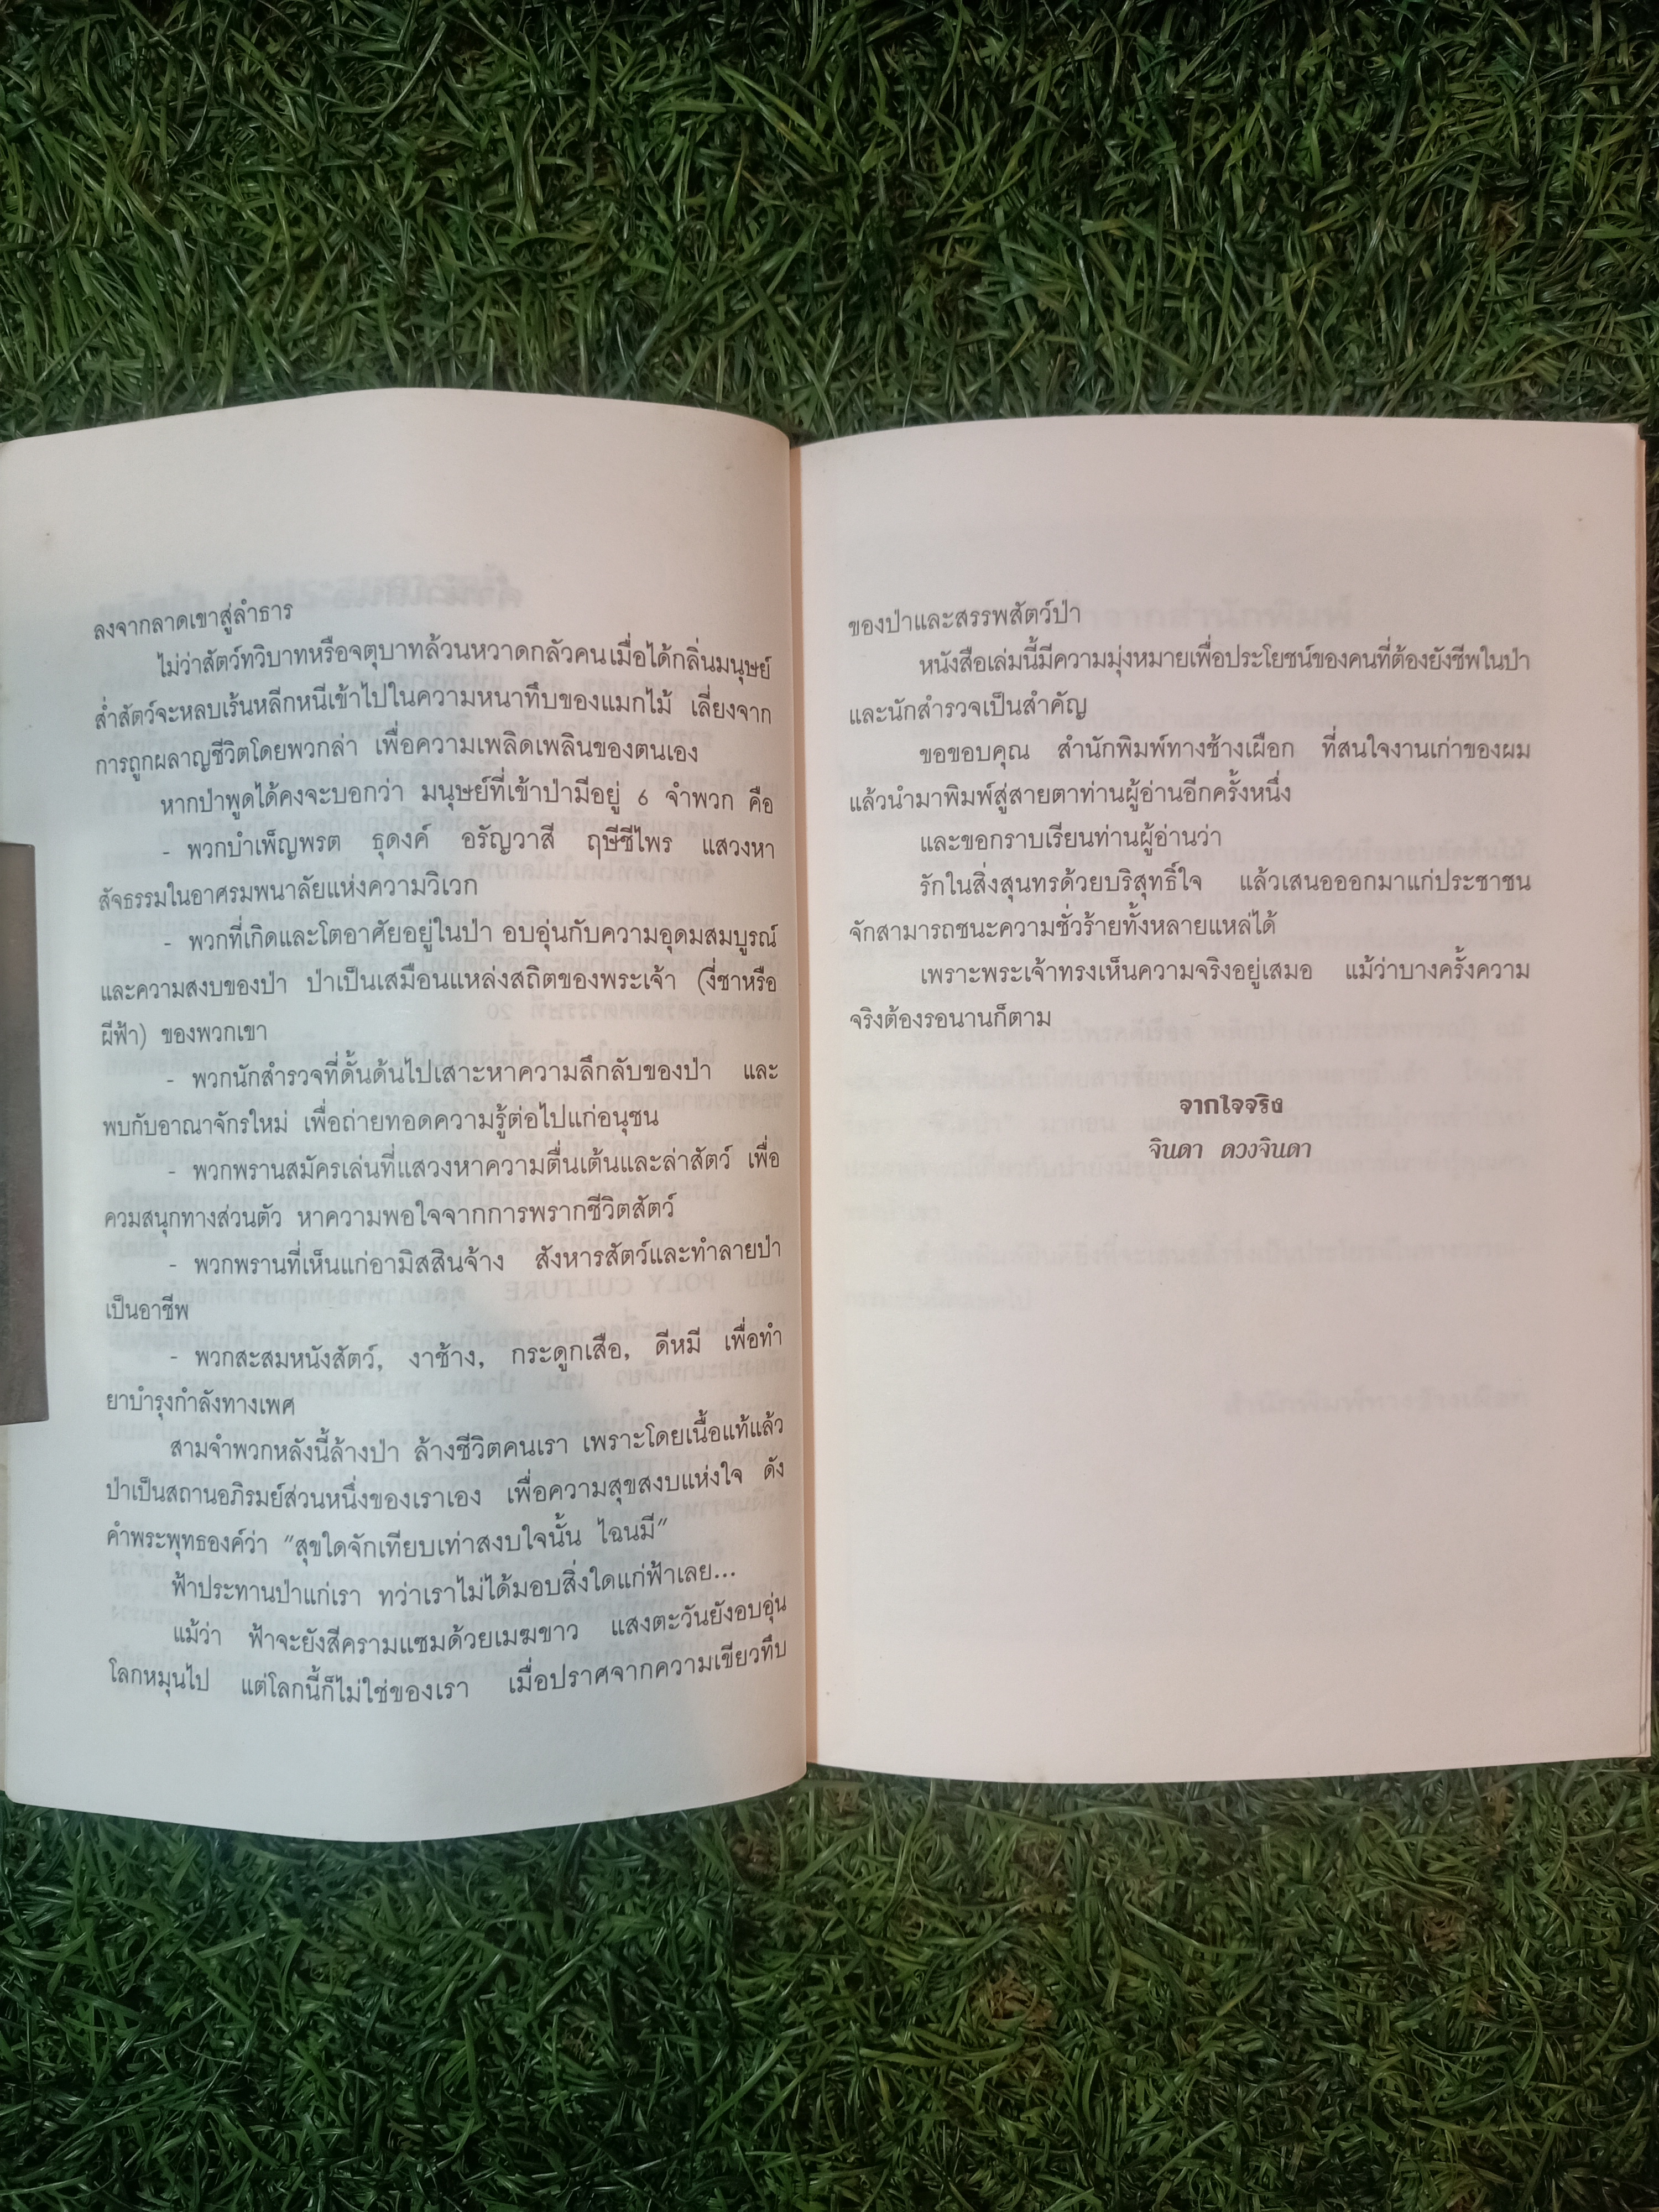 ลงจากลาดเขาสู่ลำธาร
ไม่ว่าสัตว์ทวิบาทหรือจตุบาทล้วนหวาดกลัวคนเมื่อได้กลิ่นมนุษย์
ส่ำสัตว์จะหลบเร้นหลีกหนีเข้าไปในความหนาทึบของแมกไม้ เลี่ยงจาก
การถูกผลาญชีวิตโดยพวกล่า เพื่อความเพลิดเพลินของตนเอง
หากป่าพูดได้คงจะบอกว่า มนุษย์ที่เข้าป่ามีอยู่ 6 จำพวก คือ
- พวกบำเพ็ญพรต ธุดงค์ อรัญวาสี ฤษีชีไพร แสวงหา
สัจธรรมในอาศรมพนาลัยแห่งความวิเวก
- พวกที่เกิดและโตอาศัยอยู่ในป่า อบอุ่นกับความอุดมสมบูรณ์
และความสงบของป่า ป่าเป็นเสมือนแหล่งสถิตของพระเจ้า (งี่ซาหรือ
ผีฟ้า) ของพวกเขา
- พวกนักสำรวจที่ดั้นด้นไปเสาะหาความลึกลับของป่า และ
พบกับอาณาจักรใหม่ เพื่อถ่ายทอดความรู้ต่อไปแก่อนุชน
- พวกพรานสมัครเล่นที่แสวงหาความตื่นเต้นและล่าสัตว์ เพื่อ
ควมสนุกทางส่วนตัว หาความพอใจจากการพรากชีวิตสัตว์
- พวกพรานที่เห็นแก่อามิสสินจ้าง สังหารสัตว์และทำลายป่า
เป็นอาชีพ
- พวกสะสมหนังสัตว์, งาช้าง, กระดูกเสือ, ดีหมี เพื่อทำ
ยาบำรุงกำลังทางเพศ
สามจำพวกหลังนี้ล้างป่า ล้างชีวิตคนเรา เพราะโดยเนื้อแท้แล้ว
ป่าเป็นสถานอภิรมย์ส่วนหนึ่งของเราเอง เพื่อความสุขสงบแห่งใจ ดัง
คำพระพุทธองค์ว่า "สุขใดจักเทียบเท่าสงบใจนั้น ไฉนมี"
ฟ้าประทานป่าแก่เรา ทว่าเราไม่ได้มอบสิ่งใดแก่ฟ้าเลย...
แม้ว่า ฟ้าจะยังสีครามแซมด้วยเมฆขาว แสงตะวันยังอบอุ่น
โลกหมุนไป แต่โลกนี้ก็ไม่ใช่ของเรา เมื่อปราศจากความเขียวทึบ
ของป่าและสรรพสัตว์ป่า
หนังสือเล่มนี้มีความมุ่งหมายเพื่อประโยชน์ของคนที่ต้องยังชีพในป่า
และนักสำรวจเป็นสำคัญ
ขอขอบคุณ สำนักพิมพ์ทางช้างเผือก ที่สนใจงานเก่าของผม
แล้วนำมาพิมพ์สู่สายตาท่านผู้อ่านอีกครั้งหนึ่ง
และขอกราบเรียนท่านผู้อ่านว่า
รักในสิ่งสุนทรด้วยบริสุทธิ์ใจ แล้วเสนอออกมาแก่ประชาชน
จักสามารถชนะความชั่วร้ายทั้งหลายแหล่ได้
เพราะพระเจ้าทรงเห็นความจริงอยู่เสมอ แม้ว่าบางครั้งความ
จริงต้องรอนานก็ตาม
จากใจจริง
จินดา ดวงจินดา